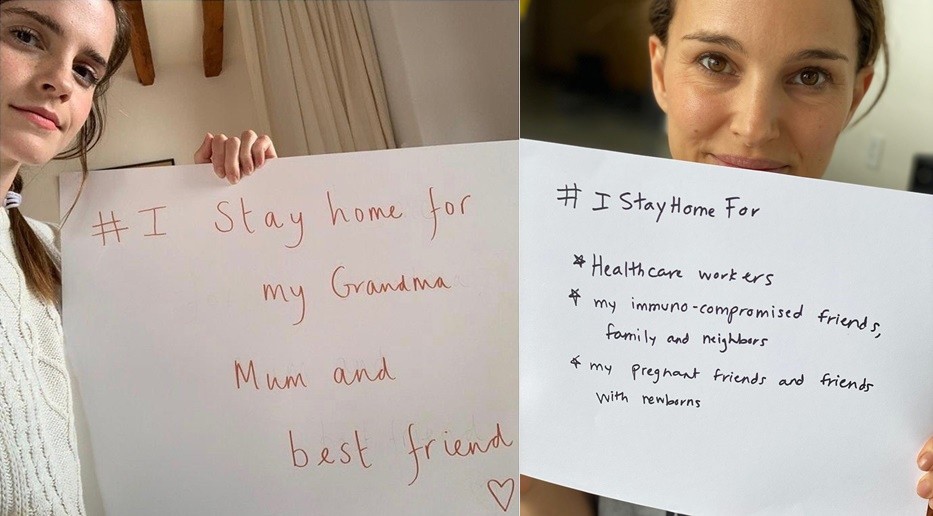 # I Stay home for
my Grandma
Mum and
best friend
# I Stay Home For
* Healthcare workers
* my immuno-compromised friends,
family and neighbors
* my pregnant friends and friends
with newborns